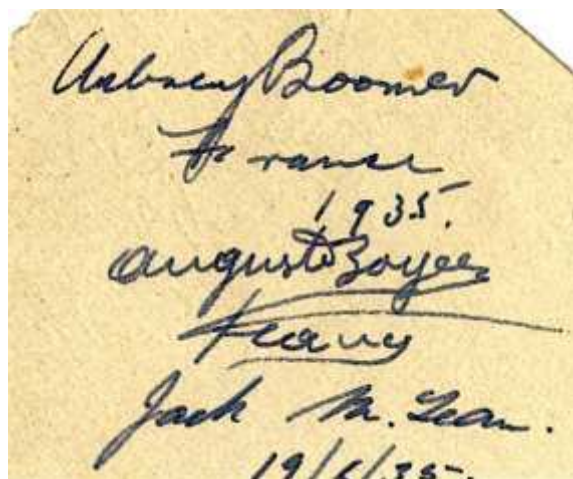 Aubrey Boomer
France
1935.
Auguste Boyer
France
Jack M. Lean.
19/6/35.